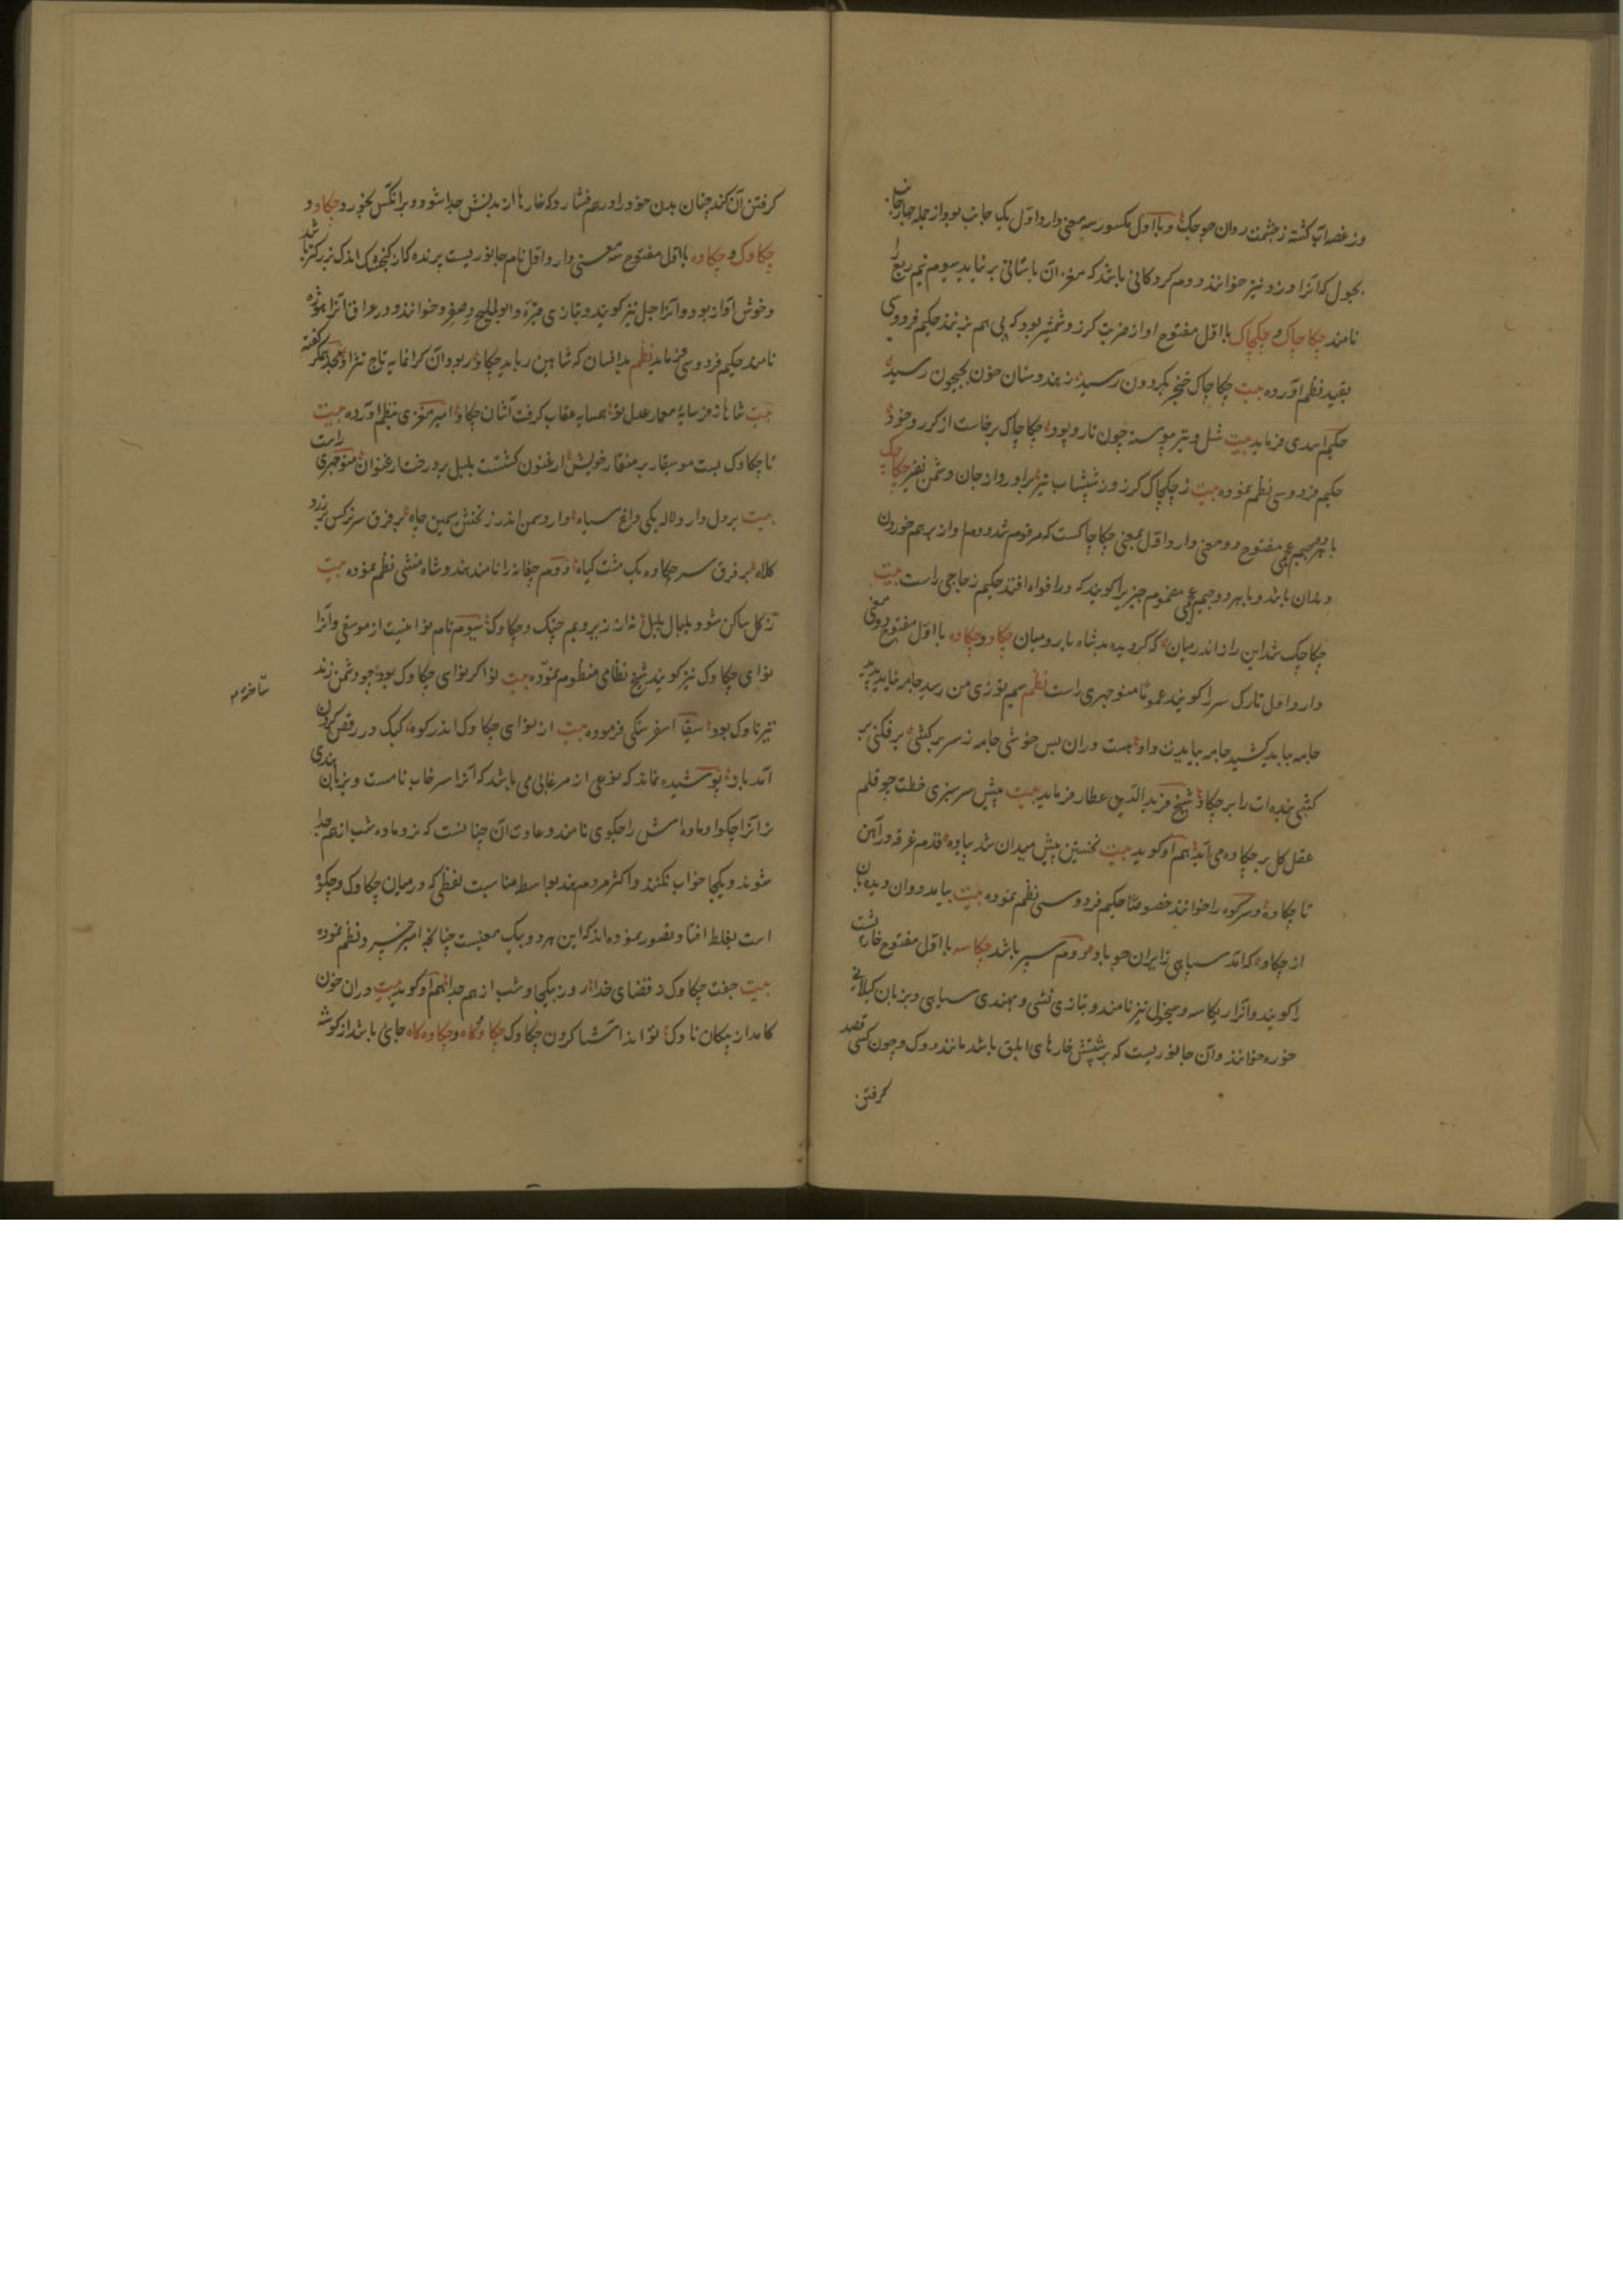 وز غصه آب کشته ز چشمت روان چو جک و با اول مکسور سه معنی دارد اول یک جانب بود از جمله چهار جانب
بجول که آنرا دزد نیز خوانند دوم کردکانی باشد که مغز آن باسانی بر نیاید سیوم نیم ربع را
نامند چکاچاک و چکچاک با اول مفتوح آواز ضرب کرز و شمشیر بود که پی هم بزنند حکیم فردوسی
بقید نظم آورده بیت چکاچاک خنجر بکردون رسید ز هندوستان خون بجیحون رسید
حکیم اسدی فرماید بیت شل و تیر پیوسته چون تار و پود چکاچاک برخاست از کرز و خود
حکیم فردوسی نظم نموده بیت ز چکچاک کرز و ز شپشاب تیر برآورد از جان دشمن نفیر چکاچک
با هر دو جیم عجمی مفتوح دو معنی دارد اول بمعنی چکاچاکست که مرقوم شد دوم آواز بر هم خوردن
دندان باشد و با هر دو جیم عجمی مضموم چیزیرا کویند که در افواه افتد حکیم زجاجی راست بیت
چکاچک شد این راز اندر میان که کردیده بد شاه با رومیان چکاد و چکاده با اول مفتوح دو معنی
دارد اول تارک سر را کویند عموما منوچهری راست نظم
جامه بباید کشید جامه بباید
کشی بنده‌ات را بر چکاد شیخ فرید الدین عطار فرماید بیت پیش سرسبزی خطت چو قلم
عقل کل بر چکاده می‌آید هم او کوید بیت نخستین پیش میدان شد پیاده قدم غرقه در آهن
تا چکاده و سر کوه را خوانند خصوصا حکیم فردوسی نظم نموده بیت بیامد دوان دیده‌بان
از چکاد که آمد سپاهی ز ایران چو باد دوم سپر باشد چکاسه با اول مفتوح خارپشت
را کویند و آنرا ریکاسه و سیخول نیز نامند و بتازی و بهندی ساهی و بزبان کیلانی
خوره خوانند و آن جانوریست که بر پشتش خارهای ابلق باشد مانند دوک و چون کسی قصد
کرفتن
کرفتن آن کند چنان بدن خود را درهم فشارد که خارها از بدنش جدا شود و بر آنکس بخورد چکاد و
چکاوک و چکاوه با اول مفتوح سه معنی دارد اول نام جانوریست پرنده که از کنجشک اندک بزرکتر باشد
و خوش آواز بود و آنرا جل نیز کویند و بتازی قبره و ابوالملیح و خوانند و در عراق آنرا
نامند حکیم فردوسی فرماید نظم بدانسان که شاهین رباید چکاو ربود آن کرانمایه تاج نژاد مجد همکر کفته
بیت شاها ز فر سایه معمار عدل تو همسایه عقاب کرفت آشیان چکاو امیر معزی نظم آورده بیت
تا چکاوک بست موسیقار بر منقار خویش ارغنون کشتست بلبل بر درخت ارغوان منوچهری راست
بیت بر دل دارد لاله یکی داغ سیاه دارد سمن اندر زنخش سیمین چاه بر فرق سر نرکس بر زرد
کلاه بر فرق سر چکاوه یک مشت کیاه دوم چغانه را نامند هندوشاه منشی نظم نموده بیت
ز کل ساکن شود بلبال بلبل نه از زیر و بم چنک و چکاوک سیوم نام نوائیست از موسیقی و آنرا
نوای چکاوک نیز کویند شیخ نظامی منظوم نموده بیت نواکر نوای چکاوک بود چو دشمن زند
تیر ناوک بود سیف اسفرنکی فرموده بیت از نوای چکاوک اندر کوه کبک در رقص کردن
آمد باز پوشیده نماند که نوعی از مرغابی می باشد که آنرا سرخاب نامست و بزبان هندی
نر آنرا چکوا و ماده‌اش را چکوی نامند و عادت آن چنانست که نر و ماده شب از هم جدا
شوند و یکجا خواب نکنند و اکثر مردم هند بواسطه مناسبت لفظی که در میان چکاوک و چکوه
است بغلط افتاده تصور نموده‌اند که این هر دو بیک معنیست چنانچه امیر خسرو نظم نموده
بیت جفت چکاوک ز قضای خدا روز بیکجا و شب از هم جدا هم او کوید بیت در آن خون
کامد از پیکان ناوک نو اندر آشنا کردن چکاوک چکاوکاه و چکاوه‌کاه جائی باشد از کوشه
ساخته